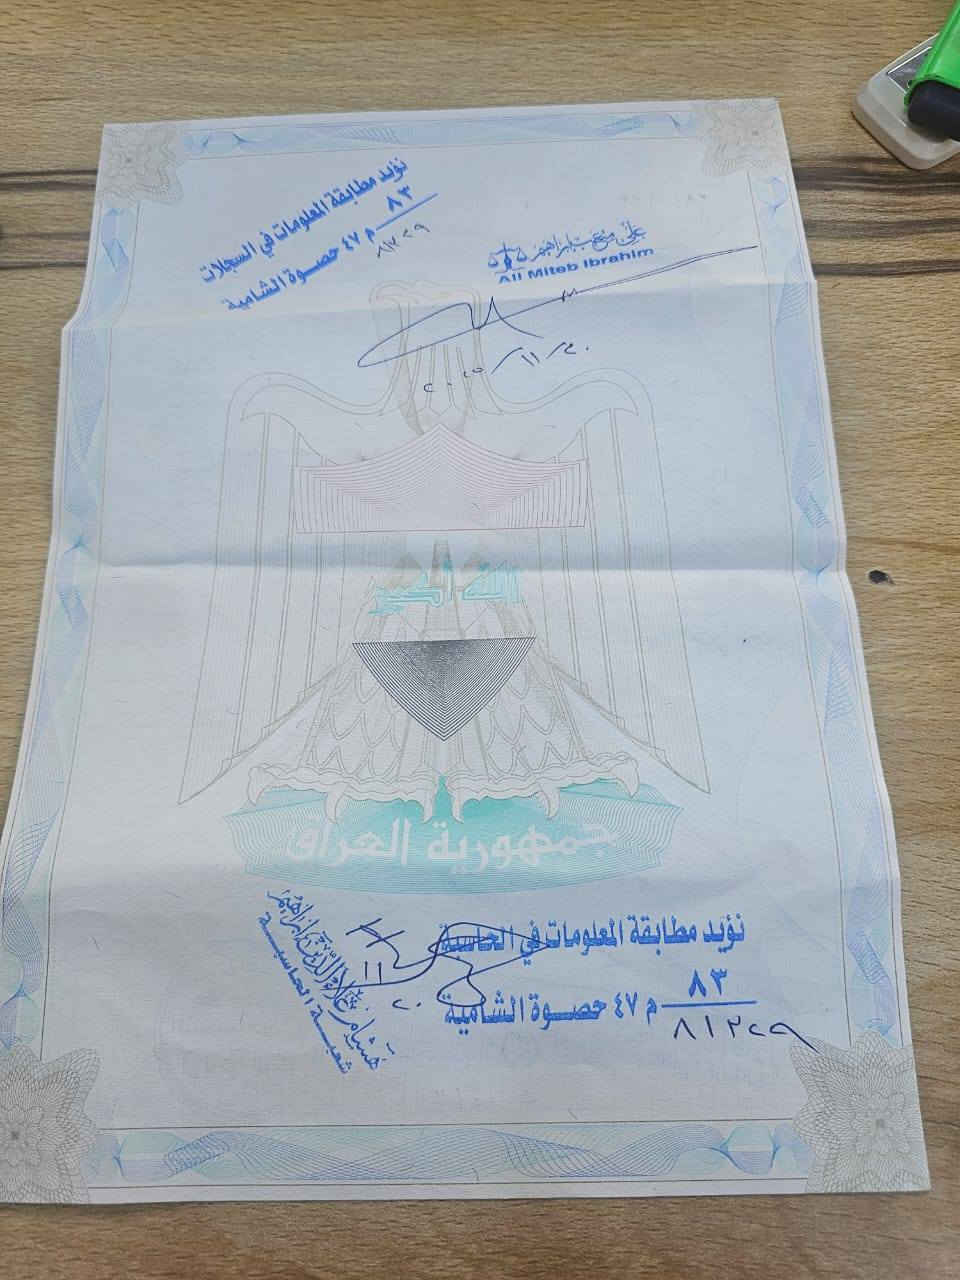 نؤيد مطابقة المعلومات في السجلات
٨٣
م ٤٧ حصوة الشامية
٨١٢٢٩
علي متعب ابراهيم
Ali Miteb Ibrahim
٢٠٢٥/١١/٢٠
الله أكبر
جمهورية العراق
نؤيد مطابقة المعلومات في الحاسبة
٨٣
م ٤٧ حصوة الشامية
٨١٢٢٩
١١
٢٠
هشام علاء الدين ابراهيم
شعبة الحاسبة